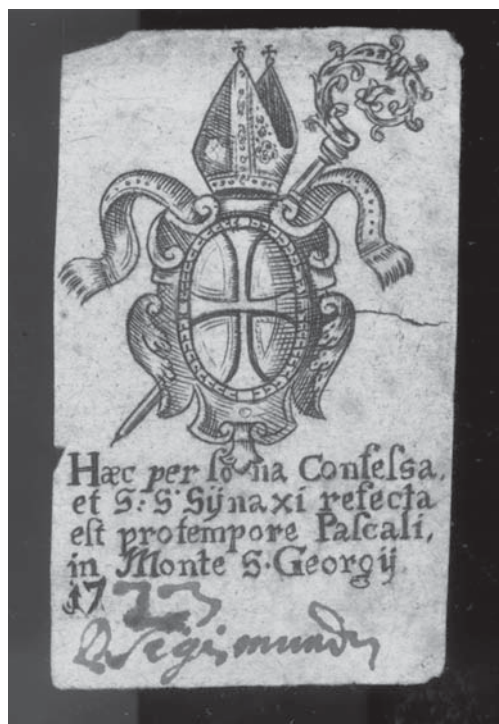 Hæc per ſo na Confeſsa,
et S: S. Sÿnaxi refecta
eſt pro tempore Paſcali,
in Monte S. Georgÿ
1723